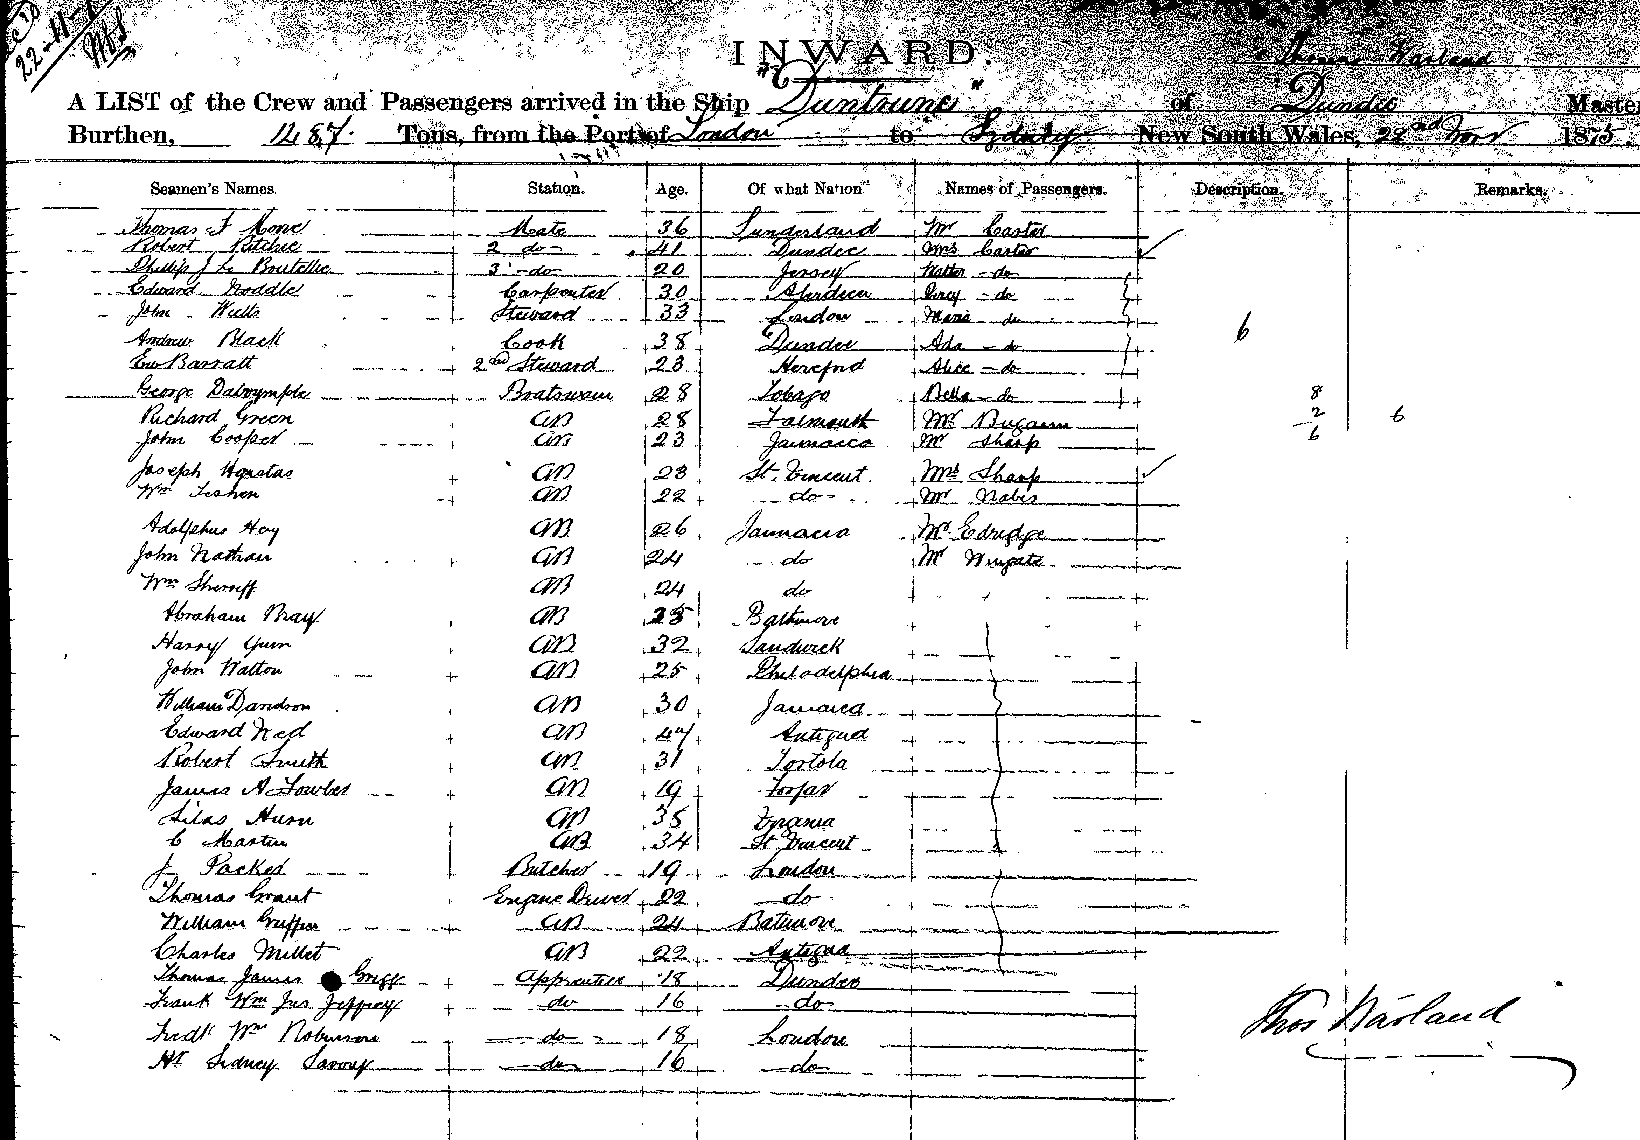 22-11-
INWARD.
Thomas Warland
A LIST of the Crew and Passengers arrived in the Ship "Duntrune" of Dundee Master
Burthen, 1287 Tons, from the Port of London to Sydney New South Wales, 22nd Novr 1875
Seamen's Names. Station. Age. Of what Nation Names of Passengers. Description. Remarks.
Thomas F Mone Mate 36 Sunderland Mr Caster
Robert Ritchie 2 do 41 Dundee Mrs Caster
Phillip J Le Boutellie 3 do 20 Jersey do
Edward Noddle Carpenter 30 Aberdeen Percy do
John Wells Steward 33 London Maria do
Andrew Black Cook 38 Dundee Ada do 6
Barratt 2nd Steward 23 Hereford Alice do
George Dalrymple Boatswain 28 Tobago Bella do 8
Richard Green AB 28 Falmouth Mr 2 6
John Cooper AB 23 Jamaica Mr Sharp 6
Joseph AB 23 St. Vincent Mrs Sharp
Wm AB 22 do Mr Nabis
Adolphus Hoy AB 26 Jamacia Mr Edridge
John Nathan AB 24 do Mr Wingate
Wm Sherriff AB 24 do
Abraham Bray AB 25 Baltimore
Harry Gunn AB 32 Sandwick
John Walton AB 25 Philadelphia
William Davidson AB 30 Jamaica
Edward Ned AB 47 Antigua
Robert Smith AB 31 Tortola
James A Fowler AB 19 Forfar
Silas AB 35 Virginia
C Martin AB 34 St Vincent
J Packer Butcher 19 London
Thomas Grant Engine Driver 22 do
William Griffin AB 24 Batimore
Charles Millet AB 22 Antigua
Thomas James Greff Apprentice 18 Dundee
Frank Wm Jas Jeffrey do 16 do
Fredk Wm Robinson do 18 London
Ht Sidney Savory do 16 do
Thos Warland